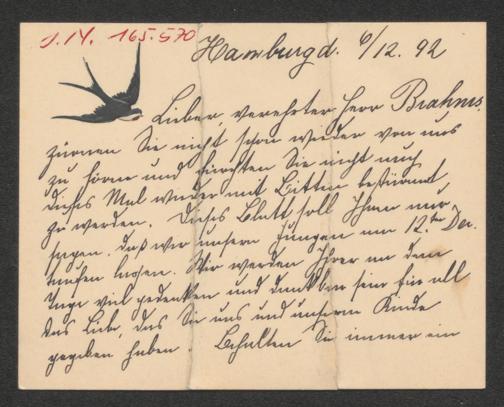 J.N. 165.570
Hamburg d. 6/12. 92
Lieber, verehrter Herr Brahms,
zürnen Sie nicht schon wieder von uns
zu hören und fürchten Sie nicht auch
dieses Mal wieder mit Bitten bestürmt
zu werden. Dieses Blatt soll Ihnen nur
sagen, daß wir unsern Jungen am 12ten Dec.
taufen lassen. Wir werden Ihrer an dem
Tage viel gedenken und dankbar sein für all
das Liebe, das Sie uns und unserm Kinde
gegeben haben. Behalten Sie immer ein